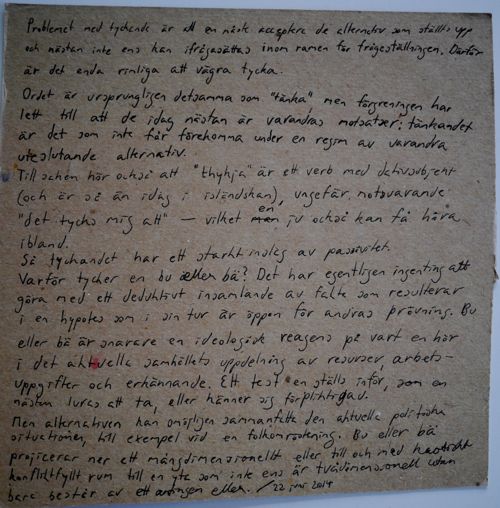 Problemet med tyckande är att en måste acceptera de alternativ som ställts upp
och nästan inte ens kan ifrågasättas inom ramen för frågeställningen. Därför
är det enda rimliga att vägra tycka.
Ordet är ursprungligen detsamma som "tänka", men förgreningen har
lett till att de idag nästan är varandras motsatser: tänkandet
är det som inte får förekomma under en regim av varandra
uteslutande alternativ.
Till saken hör också att "thykja" är ett verb med dativsubjekt
(och är så än idag i isländskan), ungefär motsvarande
"det tycks mig att" – vilket en ju också kan få höra
ibland.
Så tyckandet har ett starkt inslag av passivitet.
Varför tycker en bu eller bä? Det har egentligen ingenting att
göra med ett deduktivt insamlande av fakta som resulterar
i en hypotes som i sin tur är öppen för andras prövning. Bu
eller bä är snarare en ideologisk reagens på vart en hör
i det aktuella samhällets uppdelning av resurser, arbets-
uppgifter och erkännande. Ett test en ställs inför, som en
nästan luras att ta, eller känner sig förpliktigad.
Men alternativen kan omöjligen sammanfatta den aktuella politiska
situationen, till exempel vid en folkomröstning. Bu eller bä
projicerar ner ett mångdimensionellt eller till och med kaotiskt
konfliktfyllt rum till en yta som inte ens är tvådimensionell utan
bara består av ett antingen eller. / 22 juni 2014